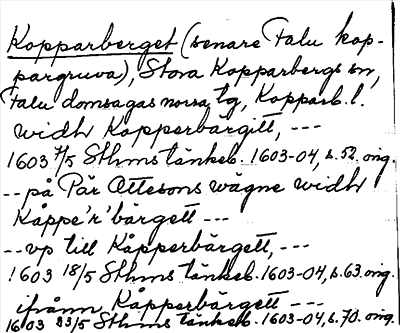 Kopparberget (senare Falu kop-
pargruva), Stora Kopparbergs sn,
Falu domsagas norra tg, Kopparb. l.
widh Kopperbärgitt, ---
1603 7/5 Sthms tänkeb. 1603-04, s. 52. orig.
-- på Pär Attesons wägne widh
Kåppe'r'bärgett ---
-- vp till Kåpperbärgett, ---
1603 18/5 Sthms tänkeb. 1603-04, s. 63. orig.
ifrånn Kåpperbärgett ---
1603 23/5 Sthms tänkeb. 1603-04, s. 70. orig.